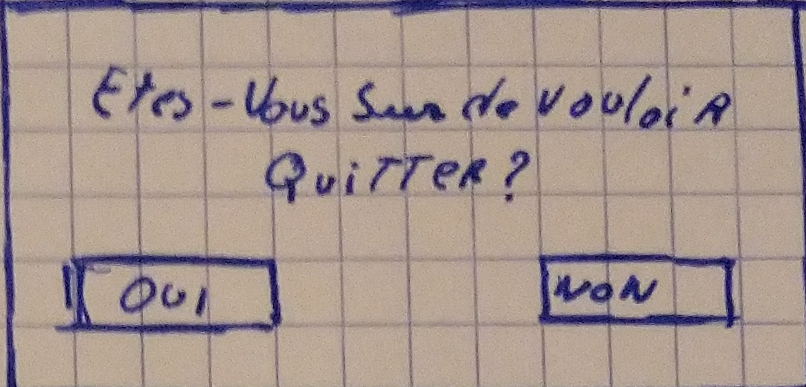 Etes-Vous Sur de vouloir
QuiTTeR?
OUI
NON